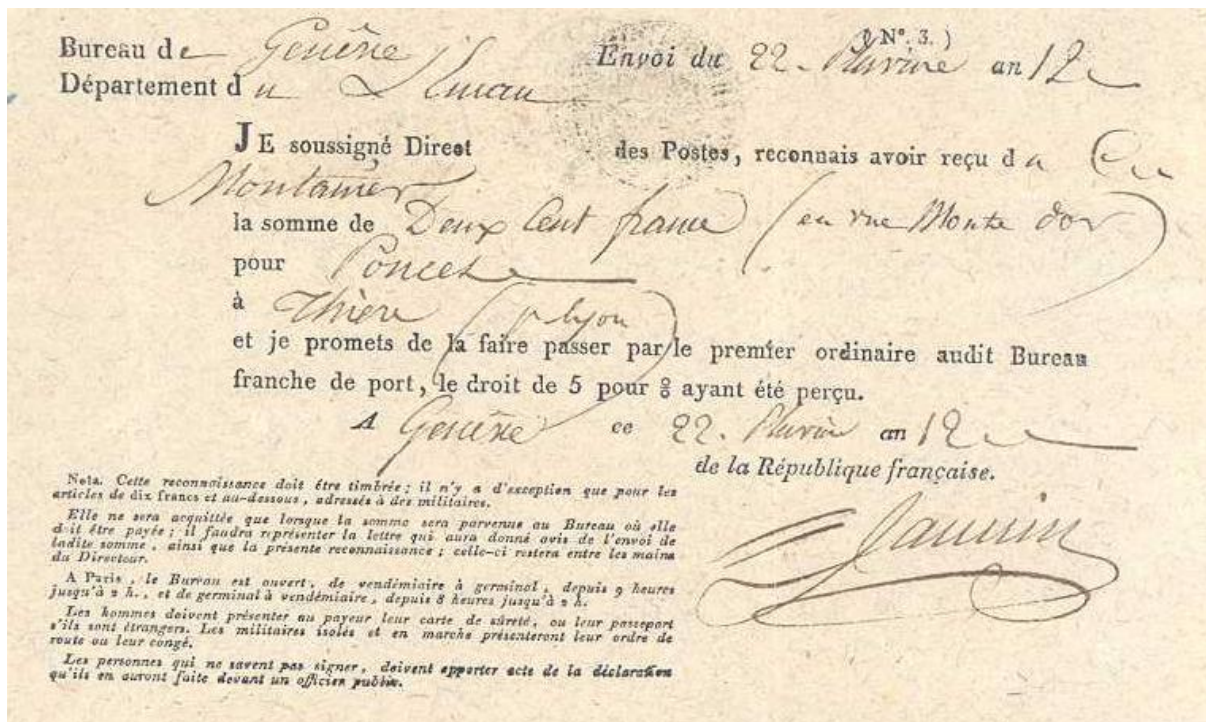 ( Nº. 3. )
Bureau de Genêve Envoi du 22. Pluviose an 12
Département du Léman
JE soussigné Direct des Postes, reconnais avoir reçu d
la somme de Deux Cent francs
pour Poncet
à (pr lyon)
et je promets de la faire passer par le premier ordinaire audit Bureau
franche de port, le droit de 5 pour % ayant été perçu.
A Genêve ce 22. Pluviose an 12
de la République française.
Nota. Cette reconnoissance doit être timbrée; il n'y a d'exception que pour les
articles de dix francs et au-dessous, adressés à des militaires.
Elle ne sera acquittée que lorsque la somme sera parvenue au Bureau où elle
doit être payée; il faudra représenter la lettre qui aura donné avis de l'envoi de
ladite somme, ainsi que la présente reconnaissance; celle-ci restera entre les mains
du Directeur.
A Paris, le Bureau est ouvert, de vendémiaire à germinal, depuis 9 heures
jusqu'à 2 h., et de germinal à vendémiaire, depuis 8 heures jusqu'à 2 h.
Les hommes doivent présenter au payeur leur carte de sûreté, ou leur passeport
s'ils sont étrangers. Les militaires isolés et en marche présenteront leur ordre de
route ou leur congé.
Les personnes qui ne savent pas signer, doivent apporter acte de la déclaration
qu'ils en auront faite devant un officier public.